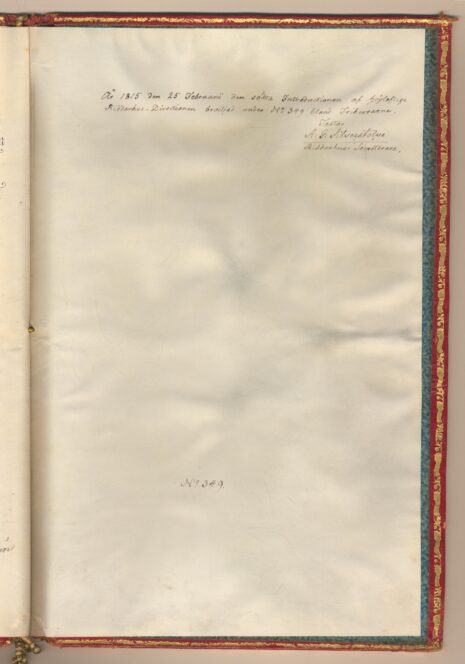 År 1815 den 25 Februarii den sökta Introductionen af högloflige
Riddarhus-Directionen beviljad, under N:o 349 bland Friherrarne.
Testor
A. G. Silverstolpe
Riddarhus-Secreterare.
N:o 349.